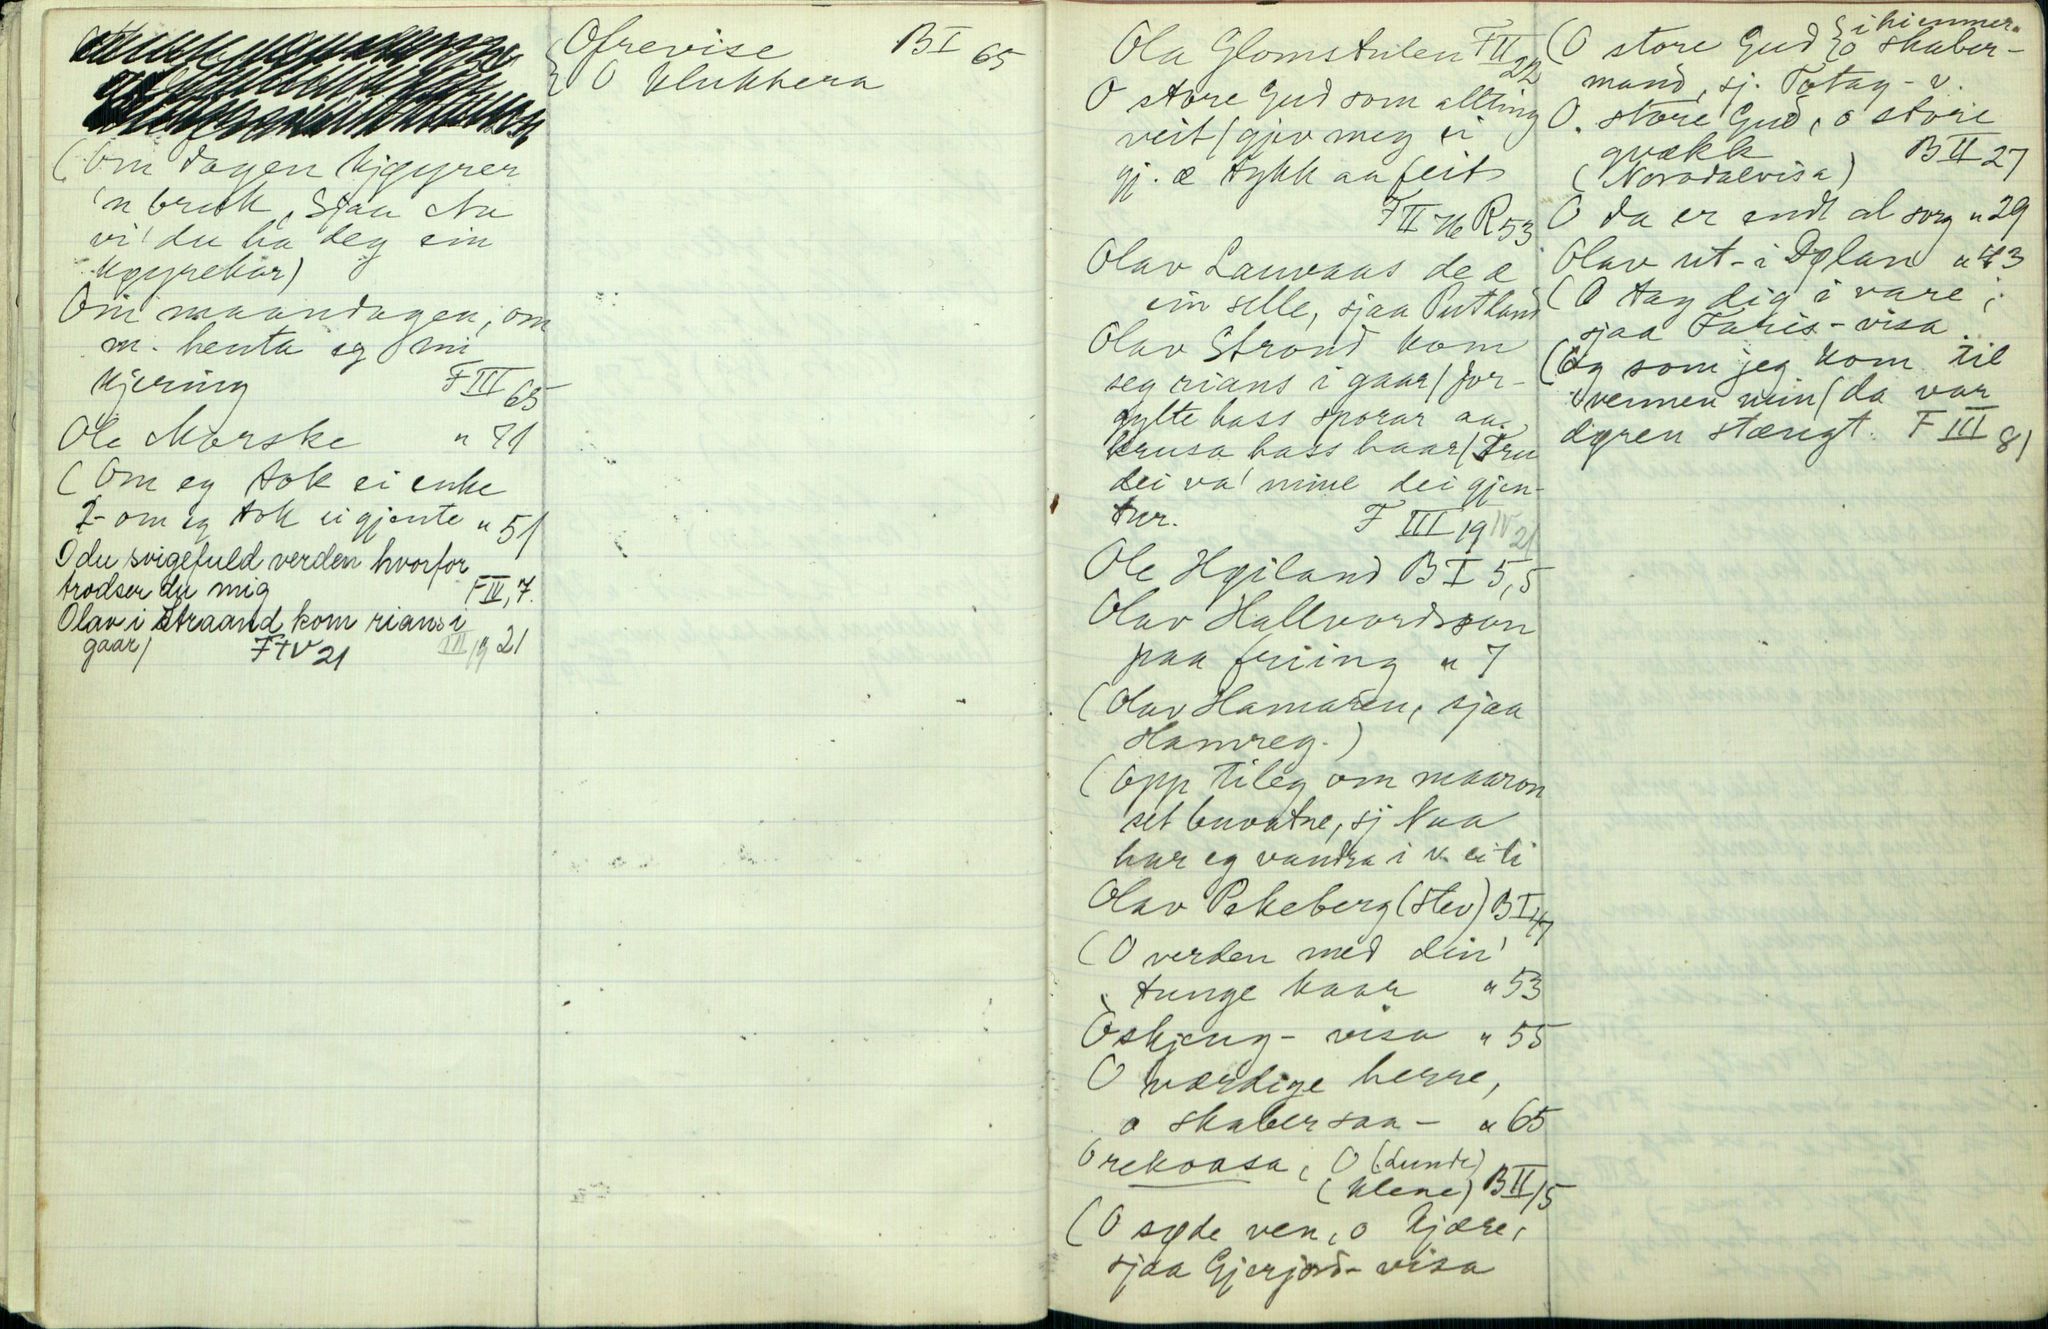 (Om dagen kjøyrer
'n brusk, sjaa Nu
vi' du ha deg ein
køyrekar)
Om maandagen, om
m. henta eg mi
kjering F III 65
Ole Morske " 71
(Om eg tok ei enke
2- om eg tok ei gjente " 51
O du svigefuld verden hvorfor
trodser du mig F IV, 7.
Olav i Straand kom rians i
gaar/ F IV 21 III 19 21
Ofrevise B I 65
O klukkera
Ola Glomstulen F II 22
O store Gud som allting
veit/gjev meg ei
gj. æ tykk aa feit
F II 76 R 53
Olav Lauvaas de æ
ein selle, sjaa Rutland
Olav Strond kom
seg rians i gaar/for-
gylte hass sporar aa
krusa hass haar/Tru
dei va' mine dei gjen-
tur. F III 19 IV 21
Ole Høiland B I 5,5
Olav Hallvordsson
paa friing " 7
(Olav Hamaren, sjaa
Hamreg.)
(Opp tileg om maaron
set buvatne, sj Naa
har eg vandra i v. ei ti
Olav Pekeberg (stev) B I 47
(O verden med din'
tunge kaar " 53
Òskjeug- visa " 55
O værdige herre,
o skaber saa- " 65
Orekvasa, O (Lunde)
(klene) B II 15
(O søde ven, o kjære,
sjaa Gjerjord- visa
(O store Gud { i himmer.
o skaber-
mand, sj. Totag- v.
O. store Gud, o store
gvækk B II 27
(Norodalvisa)
O da er endt al sorg " 29
Olav ut- i Dølan " 43
(O tag dig i vare;
sjaa Faris- visa
(Og som jeg kom til
vennen min/da var
døren stængt. F III 81